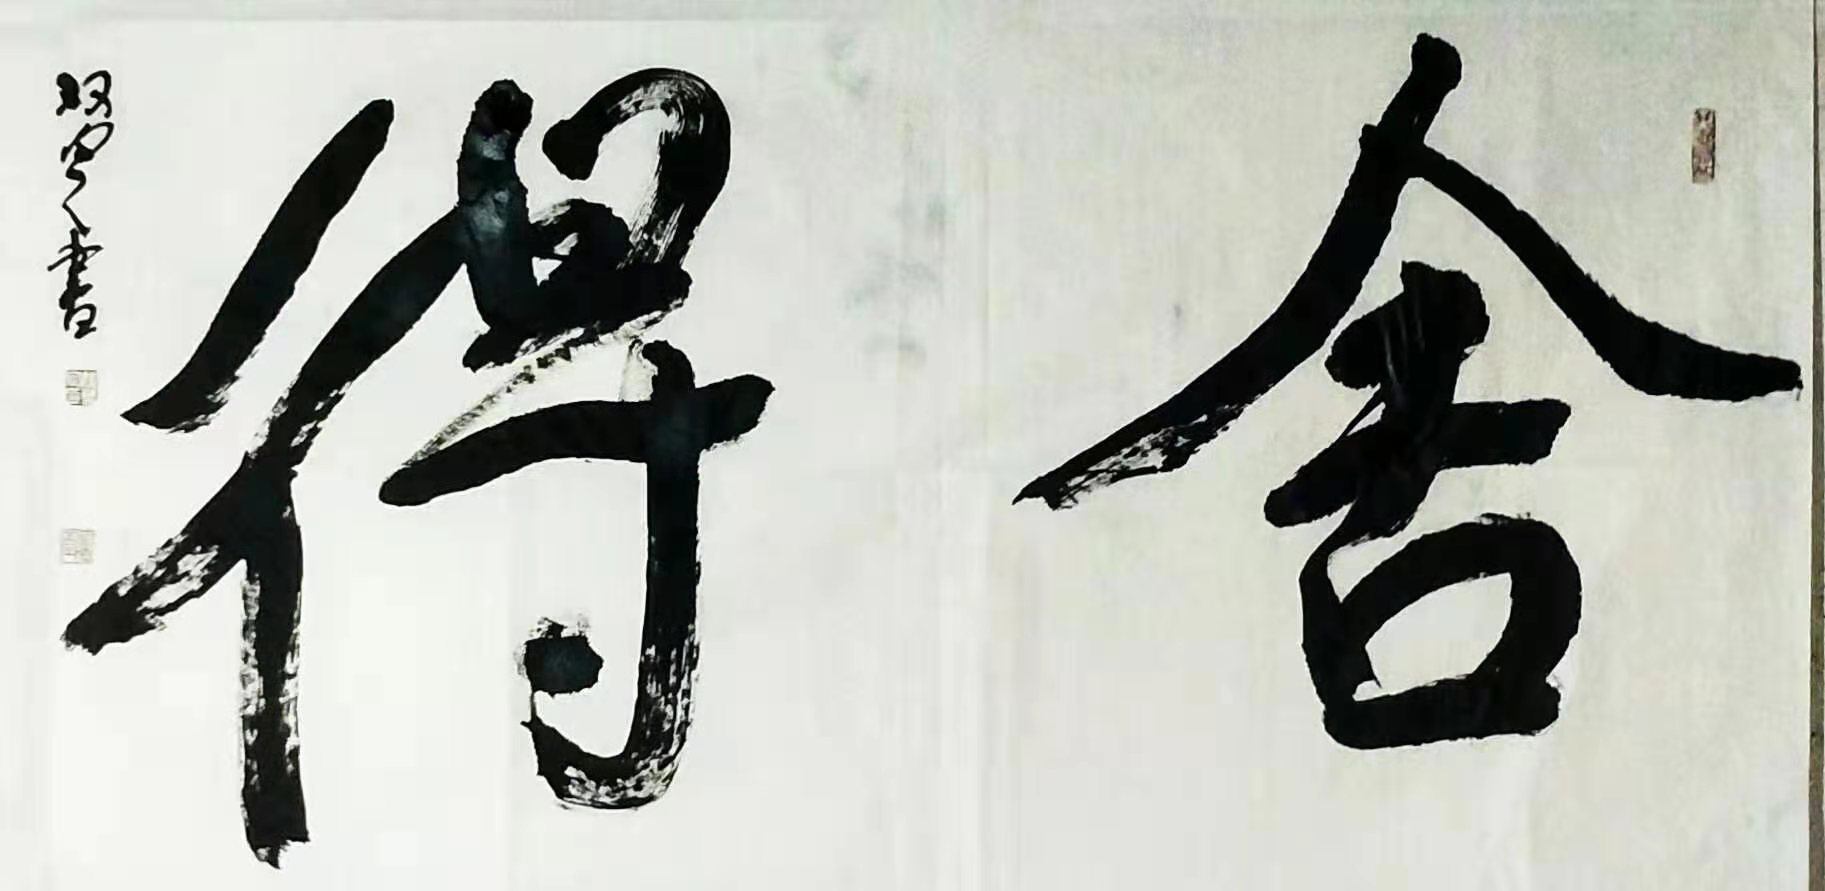 舍得
书